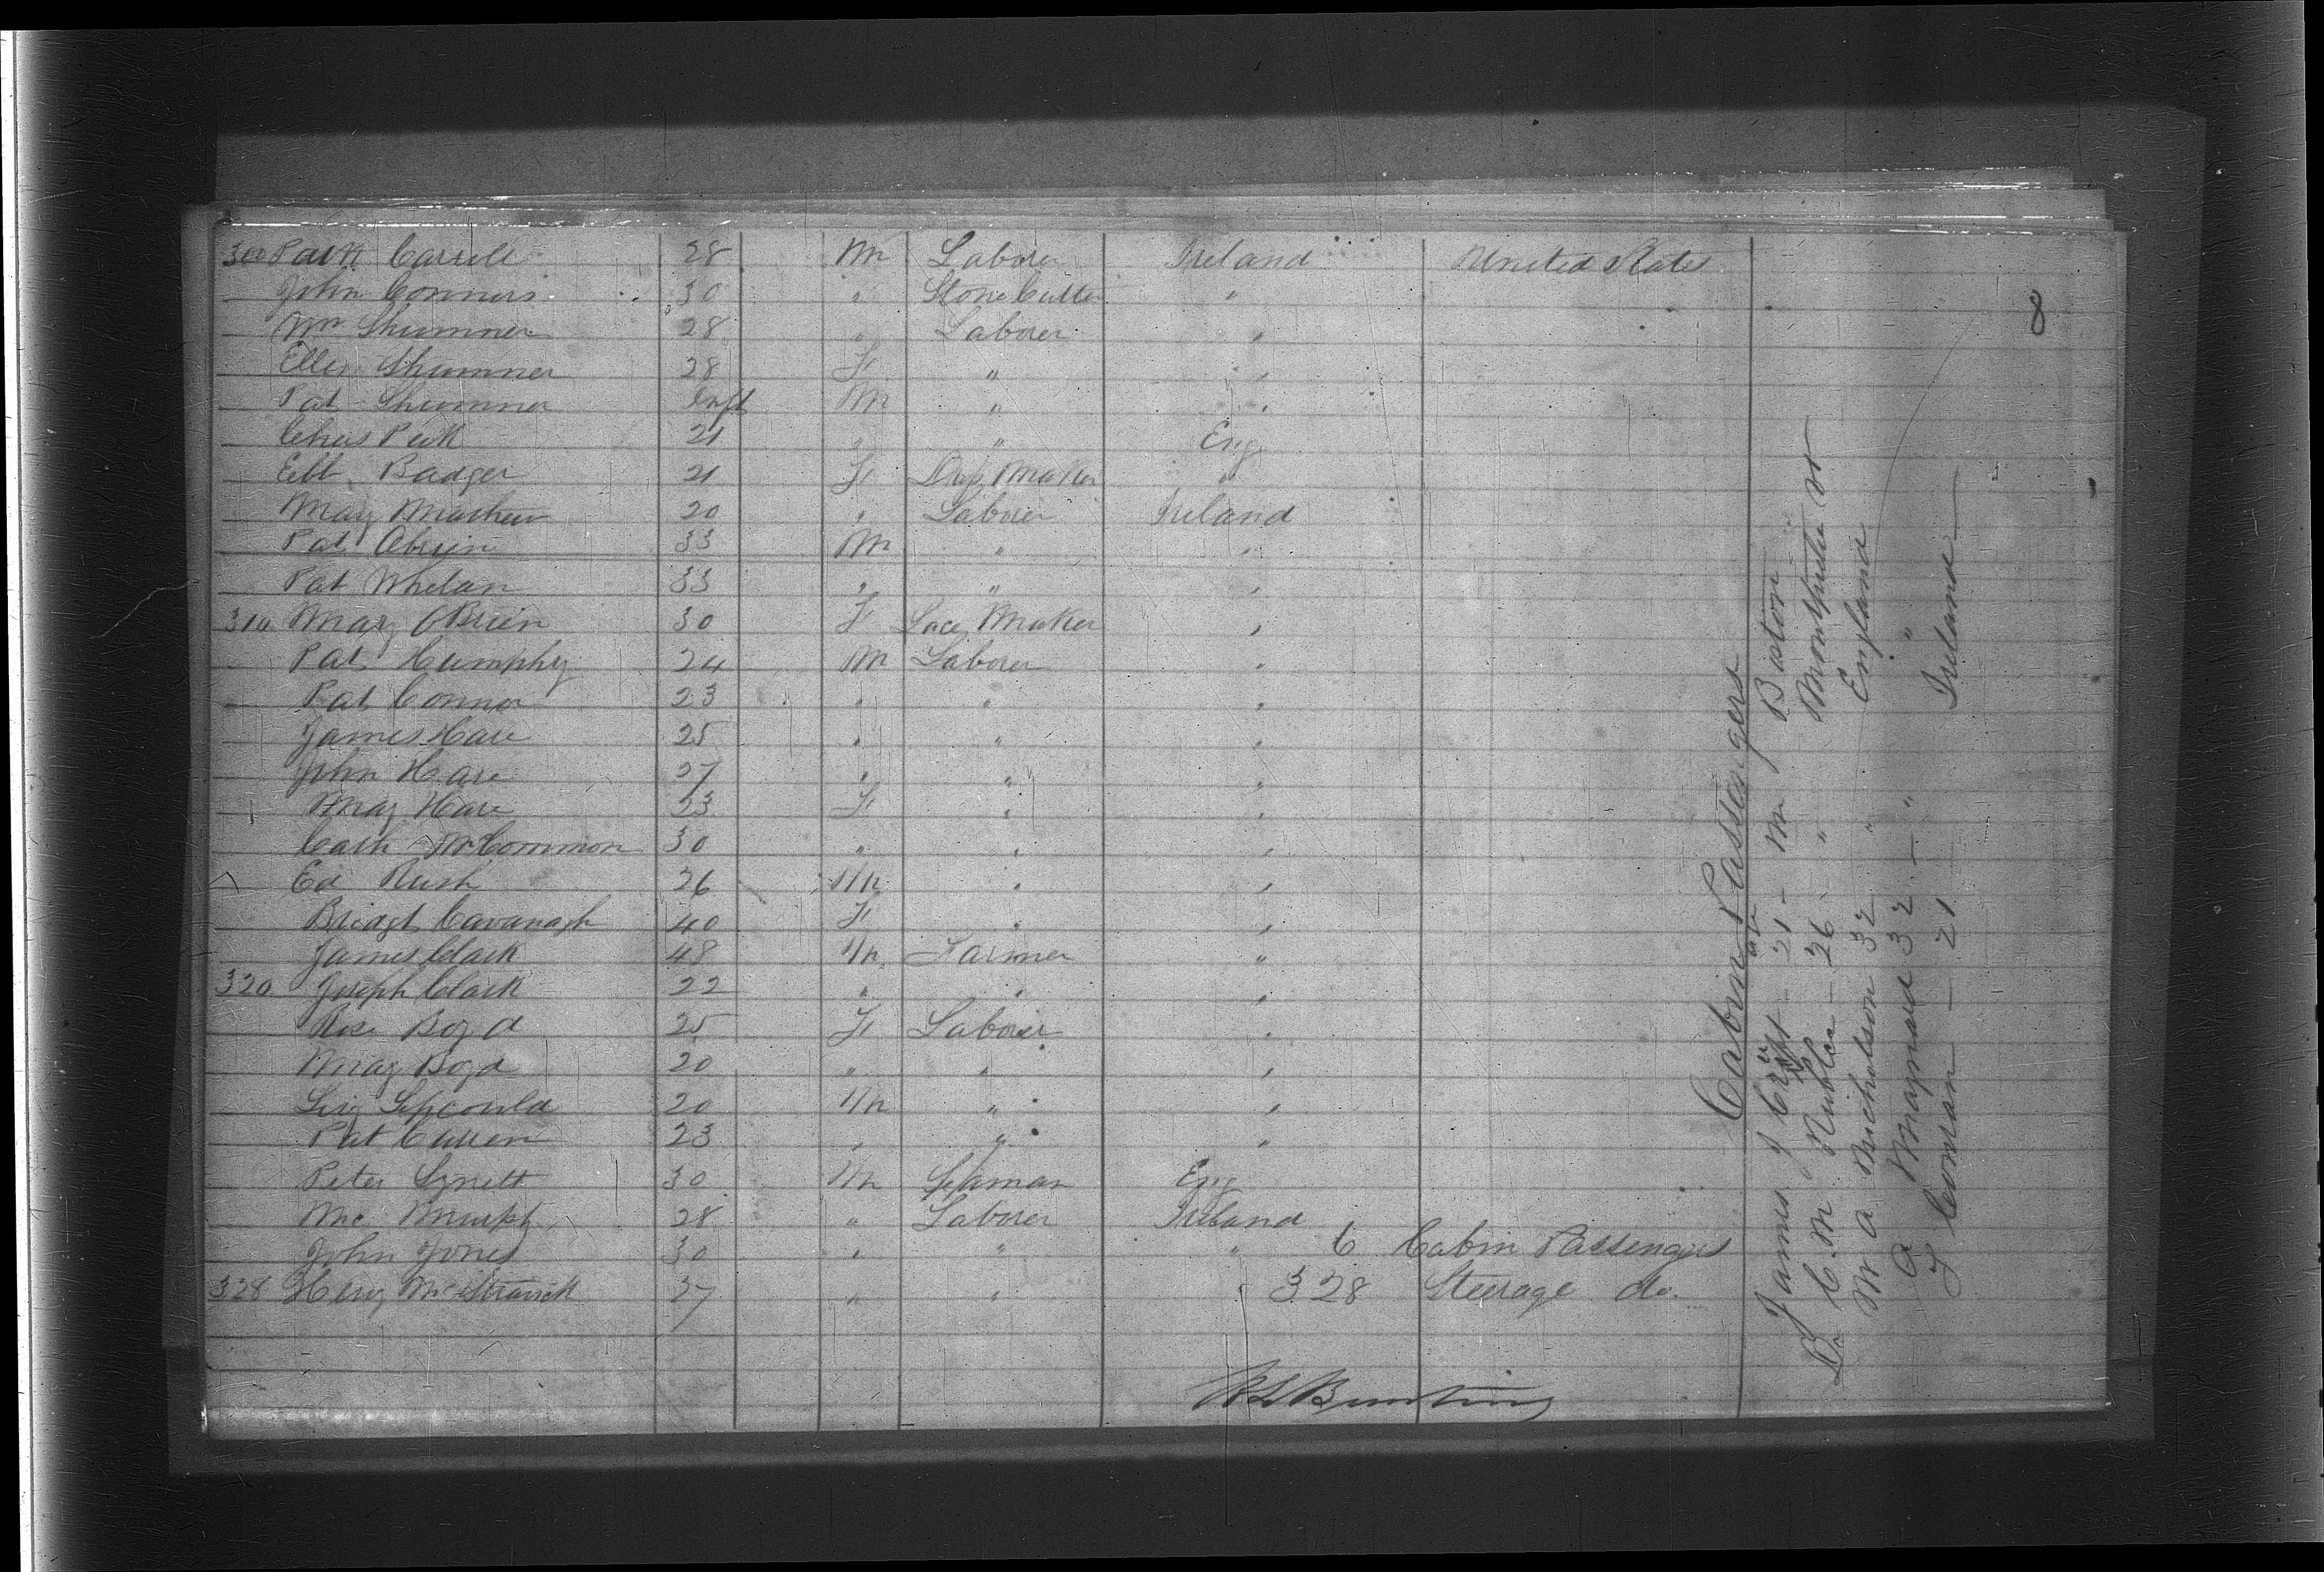 8
300 Patk Carrell 28 M Laborer Ireland United States
John Connors 30 " Stone Cutter "
Wm Shumner 28 " Laborer "
Ellen Shumner 28 F " "
Pat Shumner Inft M " "
Chas Peek 21 " " Eng
Badger 21 F Maker "
Mary Mathew 20 " Laborer Ireland
Pat Obrien 33 M " "
Pat Whelan 33 " " "
310 Mary OBrien 30 F Lace Maker "
Pat Humphy 24 M Laborer "
Pat Connor 23 " " "
James Hare 25 " " "
John Hare 27 " " "
Mary Hare 23 F " "
Cath McCommon 30 " " "
Ed Rush 26 M " "
Bridgt Cavanagh 40 F " "
James Clark 48 M Farmer "
320 Joseph Clark 22 " " "
Rose Boyd 25 F Laborer "
Mary Boyd 20 " " "
20 M " "
Pat Curren 23 " " "
Peter Lynett 30 M Seaman Eng
Murph 28 " Laborer Ireland
John Jones 30 " " " 6 Cabin Passengers
328 Heny 27 " " " 328 Steerage do.
Bunting
Cabin Passengers
James J 21 - M Boston
Dr C. M. Rublee - 26 - "
M A Nicholson 32 " England
A Maynard 32 - " "
J Condan - 21 Ireland